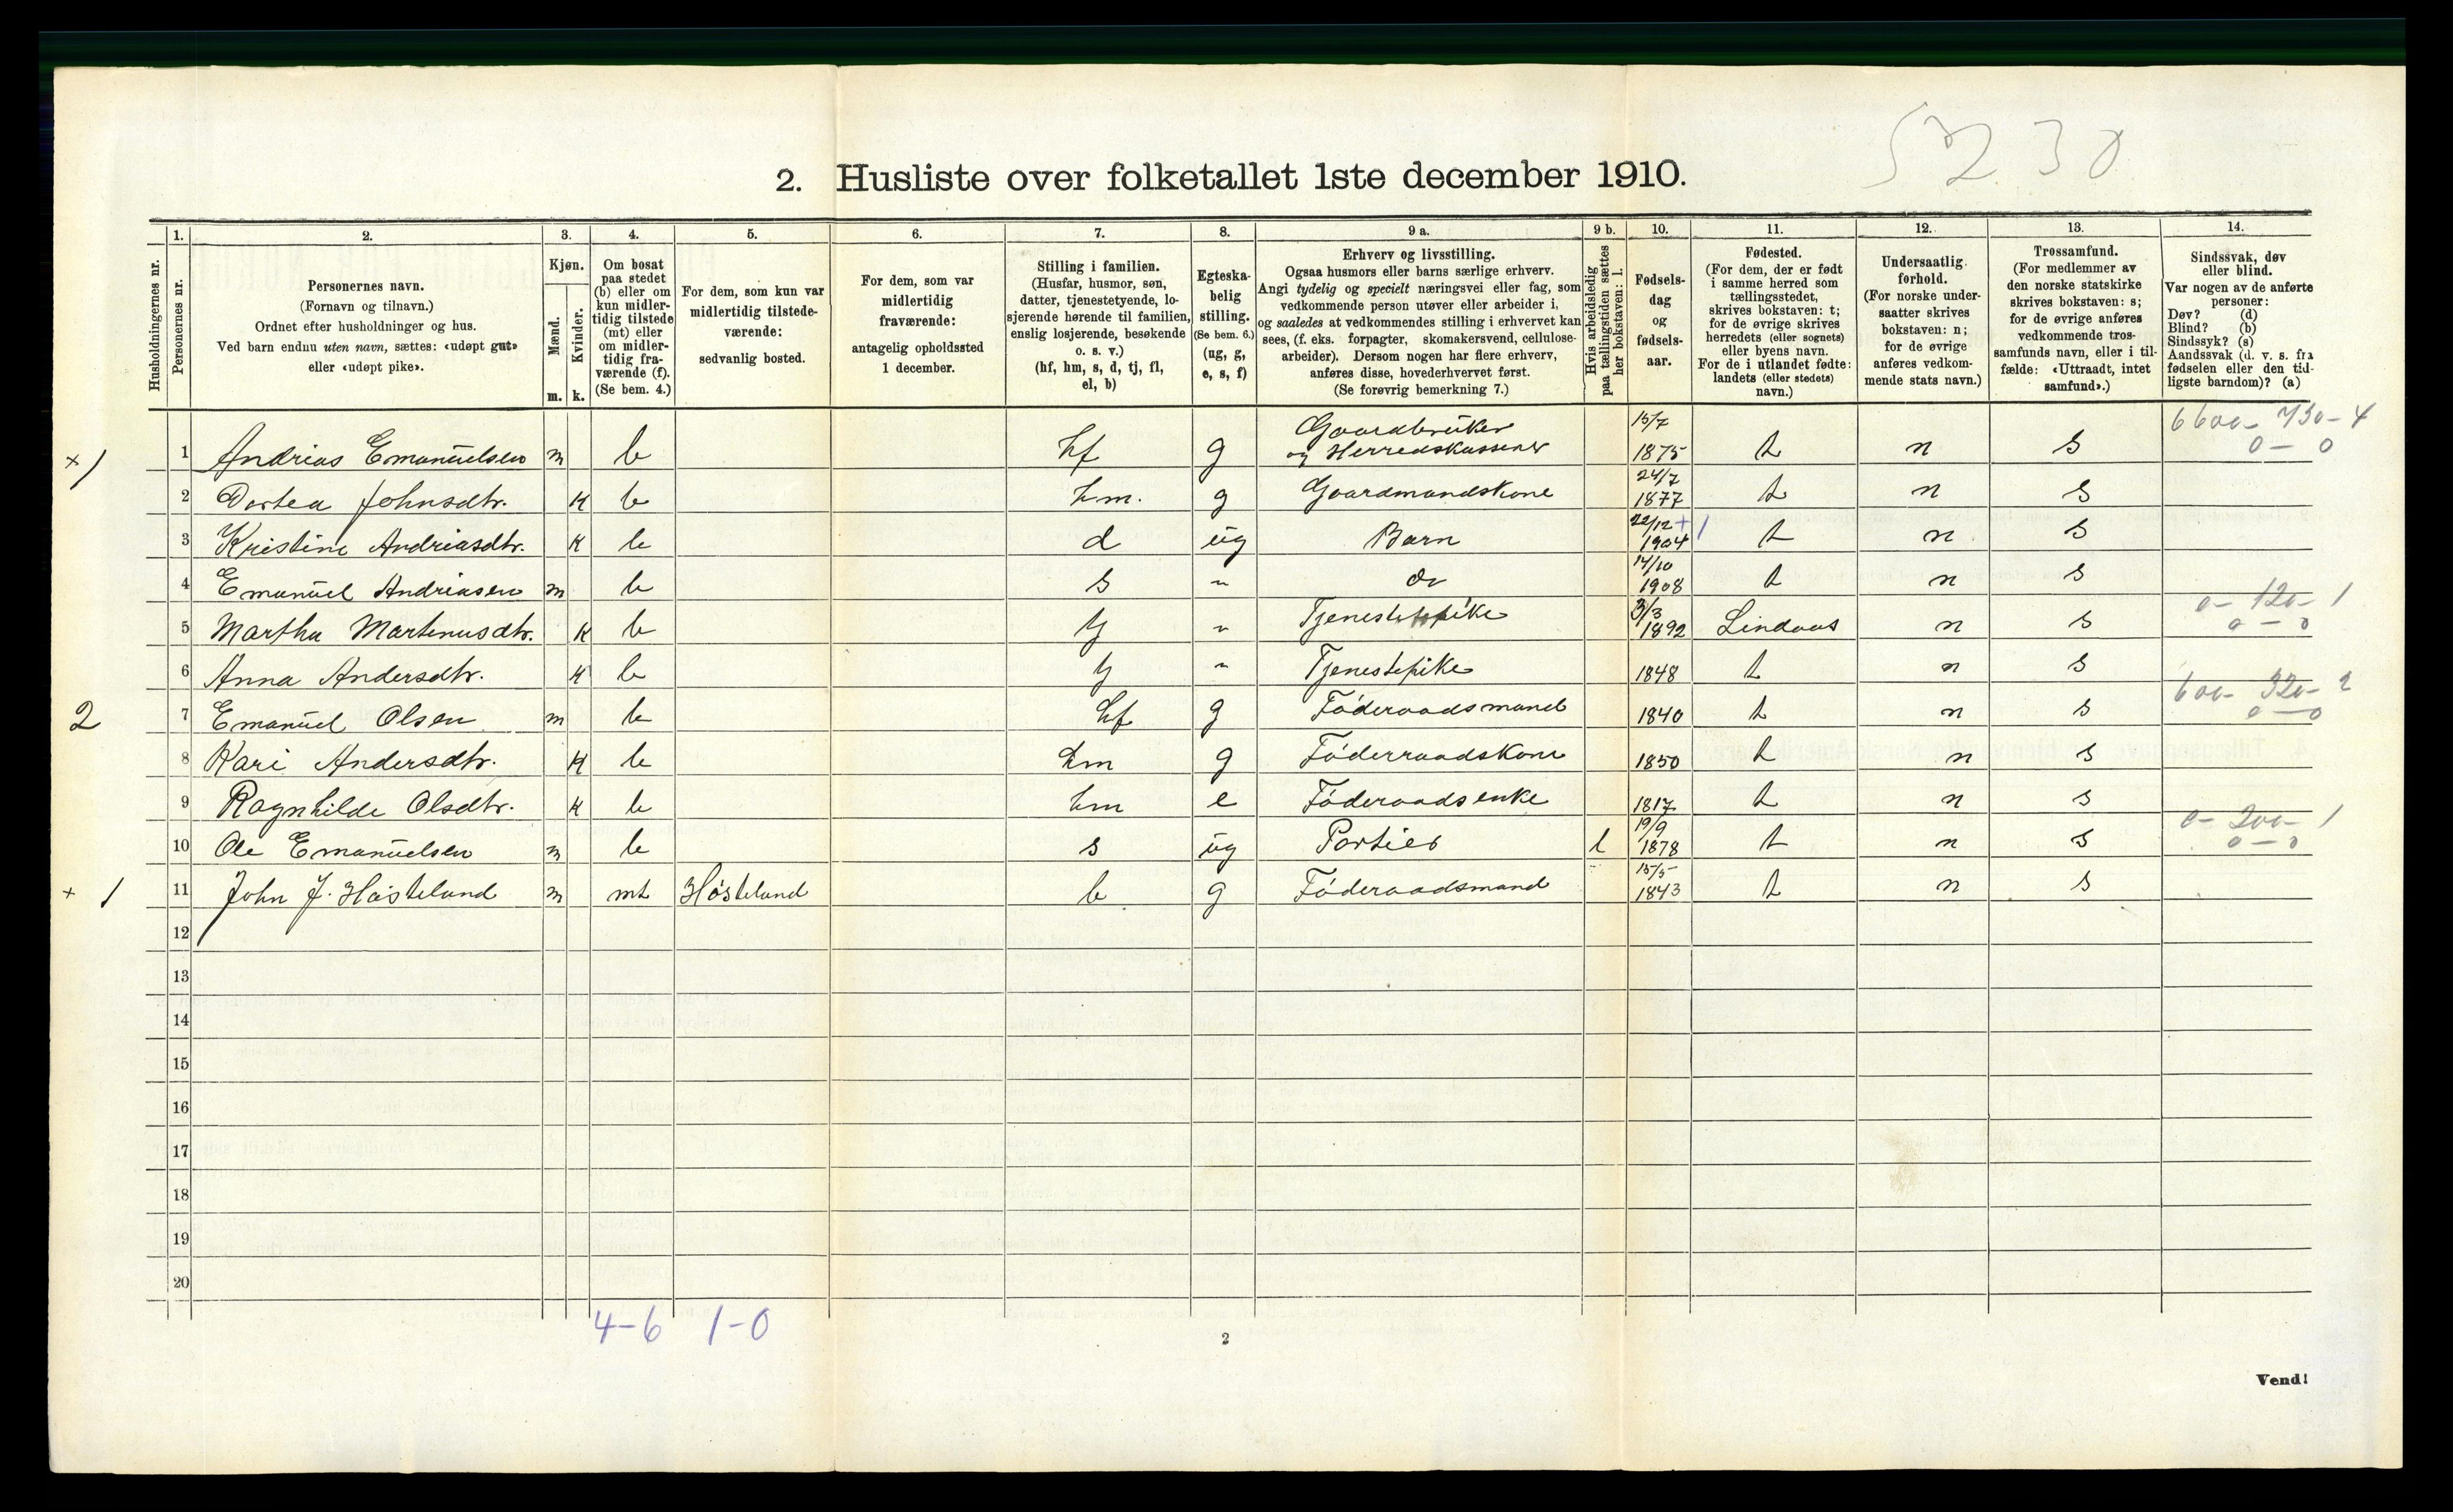 5230
2. Husliste over folketallet 1ste december 1910.
1. 2. 3. 4. 5. 6. 7. 8. 9 a. 9 b. 10. 11. 12. 13. 14.
Husholdningernes nr.
Personernes nr.
Personernes navn.
(Fornavn og tilnavn.)
Ordnet efter husholdninger og hus.
Ved barn endnu uten navn, sættes: «udøpt gut»
eller «udøpt pike».
Kjøn.
Mænd.
Kvinder.
m. k.
Om bosat
paa stedet
(b) eller om
kun midler-
tidig tilstede
(mt) eller
om midler-
tidig fra-
værende (f).
(Se bem. 4.)
For dem, som kun var
midlertidig tilstede-
værende:
sedvanlig bosted.
For dem, som var
midlertidig
fraværende:
antagelig opholdssted
1 december.
Stilling i familien.
(Husfar, husmor, søn,
datter, tjenestetyende, lo-
sjerende hørende til familien,
enslig losjerende, besøkende
o. s. v.)
(hf, hm, s, d, tj, fl,
el, b)
Egteska-
belig
stilling.
(Se bem. 6.)
(ug, g,
e, s, f)
Erhverv og livsstilling.
Ogsaa husmors eller barns særlige erhverv.
Angi tydelig og specielt næringsvei eller fag, som
vedkommende person utøver eller arbeider i,
og saaledes at vedkommendes stilling i erhvervet kan
sees, (f. eks. forpagter, skomakersvend, cellulose-
arbeider). Dersom nogen har flere erhverv,
anføres disse, hovederhvervet først.
(Se forøvrig bemerkning 7.)
Hvis arbeidsledig
paa tællingstiden sættes
her bokstaven: l.
Fødsels-
dag
og
fødsels-
aar.
Fødested.
(For dem, der er født
i samme herred som
tællingsstedet,
skrives bokstaven: t;
for de øvrige skrives
herredets (eller sognets)
eller byens navn.
For de i utlandet fødte:
landets (eller stedets)
navn.)
Undersaatlig
forhold.
(For norske under-
saatter skrives
bokstaven: n;
for de øvrige
anføres vedkom-
mende stats navn.)
Trossamfund.
(For medlemmer av
den norske statskirke
skrives bokstaven: s;
for de øvrige anføres
vedkommende tros-
samfunds navn, eller i til-
fælde: «Uttraadt, intet
samfund».)
Sindssvak, døv
eller blind.
Var nogen av de anførte
personer:
Døv? (d)
Blind? (b)
Sindssyk? (s)
Aandssvak (d. v. s. fra
fødselen eller den tid-
ligste barndom)? (a)
x 1 1 Andrias Emanuelsen m b hf g Gaardbruker og Herredskasserer 15/7 1875 t n s 6600- 730-4 0-0
2 Dortea Johnsdtr. k b hm. g Gaardmandskone 24/7 1877 t n s
3 Kristine Andriasdtr. k b d ug Barn 22/12 + 1 1904 t n s
4 Emanuel Andriasen m b s " do 14/10 1908 t n s
5 Martha Martinusdtr. k b tj " Tjenestepike 3/3 1892 Lindaas n s 0- 120- 1 0-0
6 Anna Andersdtr. k b tj " Tjenestepike 1848 t n s
2 7 Emanuel Olsen m b hf g Föderaadsmand 1840 t n s 600- 320- 2 0-0
8 Kari Andersdtr. k b hm g Föderraadskone 1850 t n s
9 Ragnhilde Olsdtr. k b hm e Föderaadsenke 1817 t n s
10 Ole Emanuelsen m b s ug Portier l 19/9 1878 t n s 0- 200- 1 0-0
+ 1 11 John J. Høsteland m mt Høsteland b g Föderaadsmand 15/5 1843 t n s
12
13
14
15
16
17
18
19
20
4-6 1-0
2
Vend!